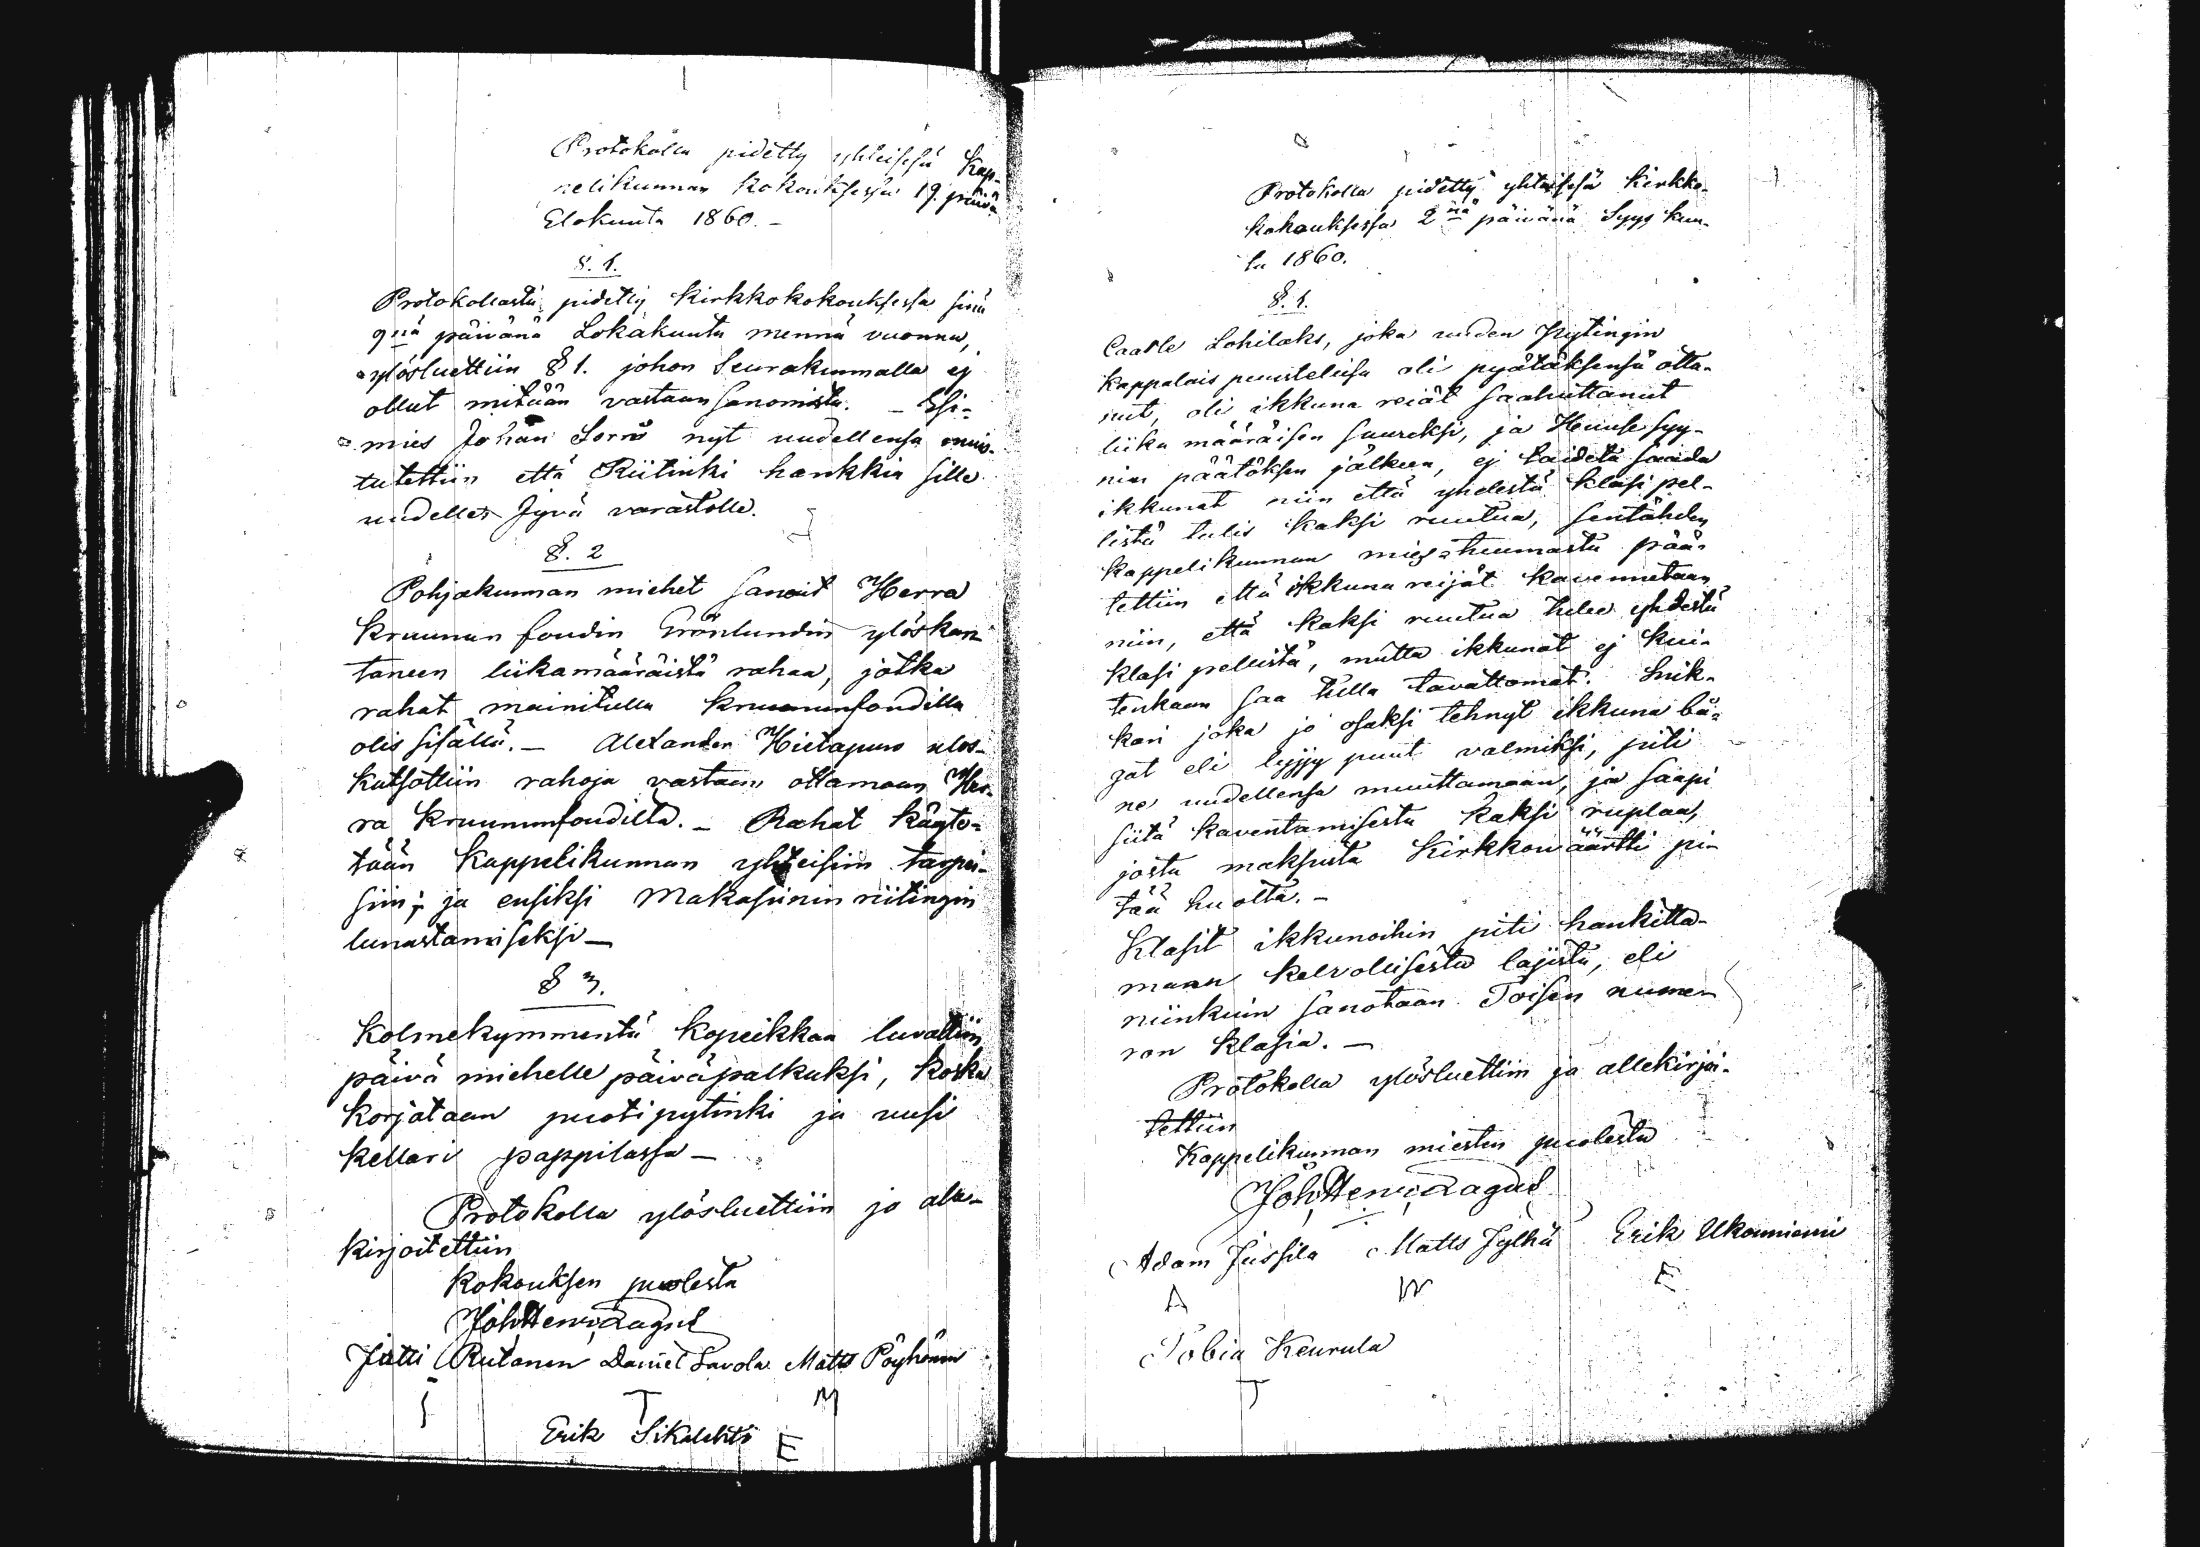 Protokolla pidetty yhteisesä Kap-
pelikunnan Kokouksessa 19. päivä
Elokuuta 1860. -
§. 1.
Protokollasta pidetty Kirkkokokouksessa sinä
9nä päivänä Lokakuuta mennä vuonna,
ylösluettiin § 1. johon Seurakunnalla ej
ollut mitään vastaan sanomista. - Esi-
mies Johan Sorri nyt uudellensa muis-
tutettiin että Riitinki hankkia sille
uudelle Jyvä varastolle.
§. 2
Pohjakunnan miehet sanoit Herra
Kruunun foudin Grönlundin ylöskan-
taneen liikamääräistä rahaa, jotka
rahat mainitulla Kruununfoudilla
olis sisällä. - Alexander Hietapuro ulos-
kutsottiin rahoja vastaan ottamaan Her-
ra Kruununfoudilta. - Rahat käyte-
tään Kappelikunnan yhteisiin tarpei-
siin; ja ensiksi Makasiinin riitingin
lunastamiseksi -
§ 3.
Kolmekymmentä Kopeikkaa luvattiin
päivä miehelle päiväpalkuksi, Koska
Korjataan puotipytinki ja uusi
Kellari pappilassa -
Protokolla ylösluettiin ja alle-
kirjoitettiin
Kokouksen puolesta
Joh. Henr. Lagus
Jutti Rutanen Daniel Savola Matts Pöyhönen
J T M
Erik Sikalehti E
Protokolla pidetty yhteisesä Kirkko-
kokouksessa 2nä päivänä Syys kuu-
ta 1860.
§. 1.
Caarle Lohilaks, joka uuden Pytingin
Kappalais puustelissa oli pyätäksensä otta-
nut, oli ikkuna reiät saahuttanut
liika määräisen suureksi, ja Huuse syy-
nin päätöksen jälkeen, ej taideta saada
ikkunat niin että yhdestä klasi pel-
listä tulis kaksi ruutua, sentähden
Kappelikunnan mies-huumasta pää-
tettiin että ikkuna reijät kavennetaan
niin, että kaksi ruutua tulee yhdestä
klasi pellistä, mutta ikkunat ej kui-
tenkaan saa tulla tavattomat. Snik-
kari joka jo osaksi tehnyt ikkuna bå-
gat eli lyjyy puut valmiksi, piti
ne uudellensa muuttamaan, ja saapi
siitä kaventamisesta kaksi ruplaa,
josta maksusta Kirkkowäärtti pi-
tää huolta. -
Klasit ikkunoihin piti hankitta-
man kelvollisesta lajista, eli
niinkuin sanotaan Toisen nume-
ron klasia. -
Protokolla ylösluettiin ja allekirjoi-
tettiin
Kappelikunnan miesten puolesta
Joh. Henr. Lagus
Adam Jussila Matts Jylhä Erik Ukonniemi
A M E
Tobia Keurula
T